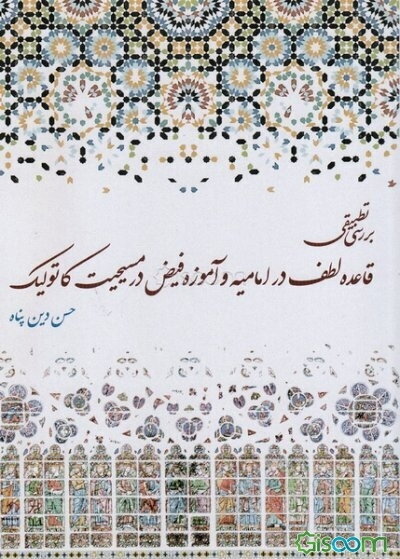 بررسی تطبیقی
قاعده لطف در امامیه و آموزه فیض در مسیحیت کاتولیک
حسن دین پناه
Gisoom.com